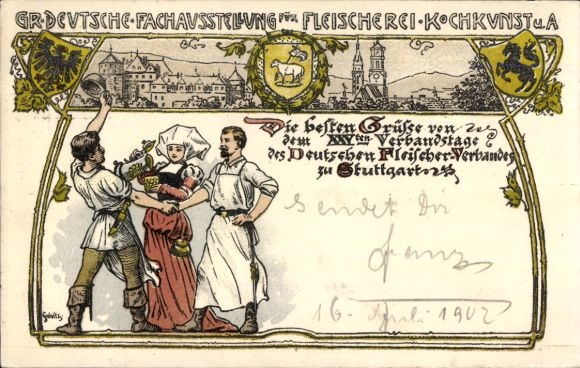 GR·DEUTSCHE·FACHAUSSTELLUNG FÜR FLEISCHEREI·KOCHKUNST U.A
Die besten Grüsse von
dem XXVten Verbandstage
des Deutschen Fleischer-Verbandes
zu Stuttgart
sendet Dir
Franz
16. Juli 1902